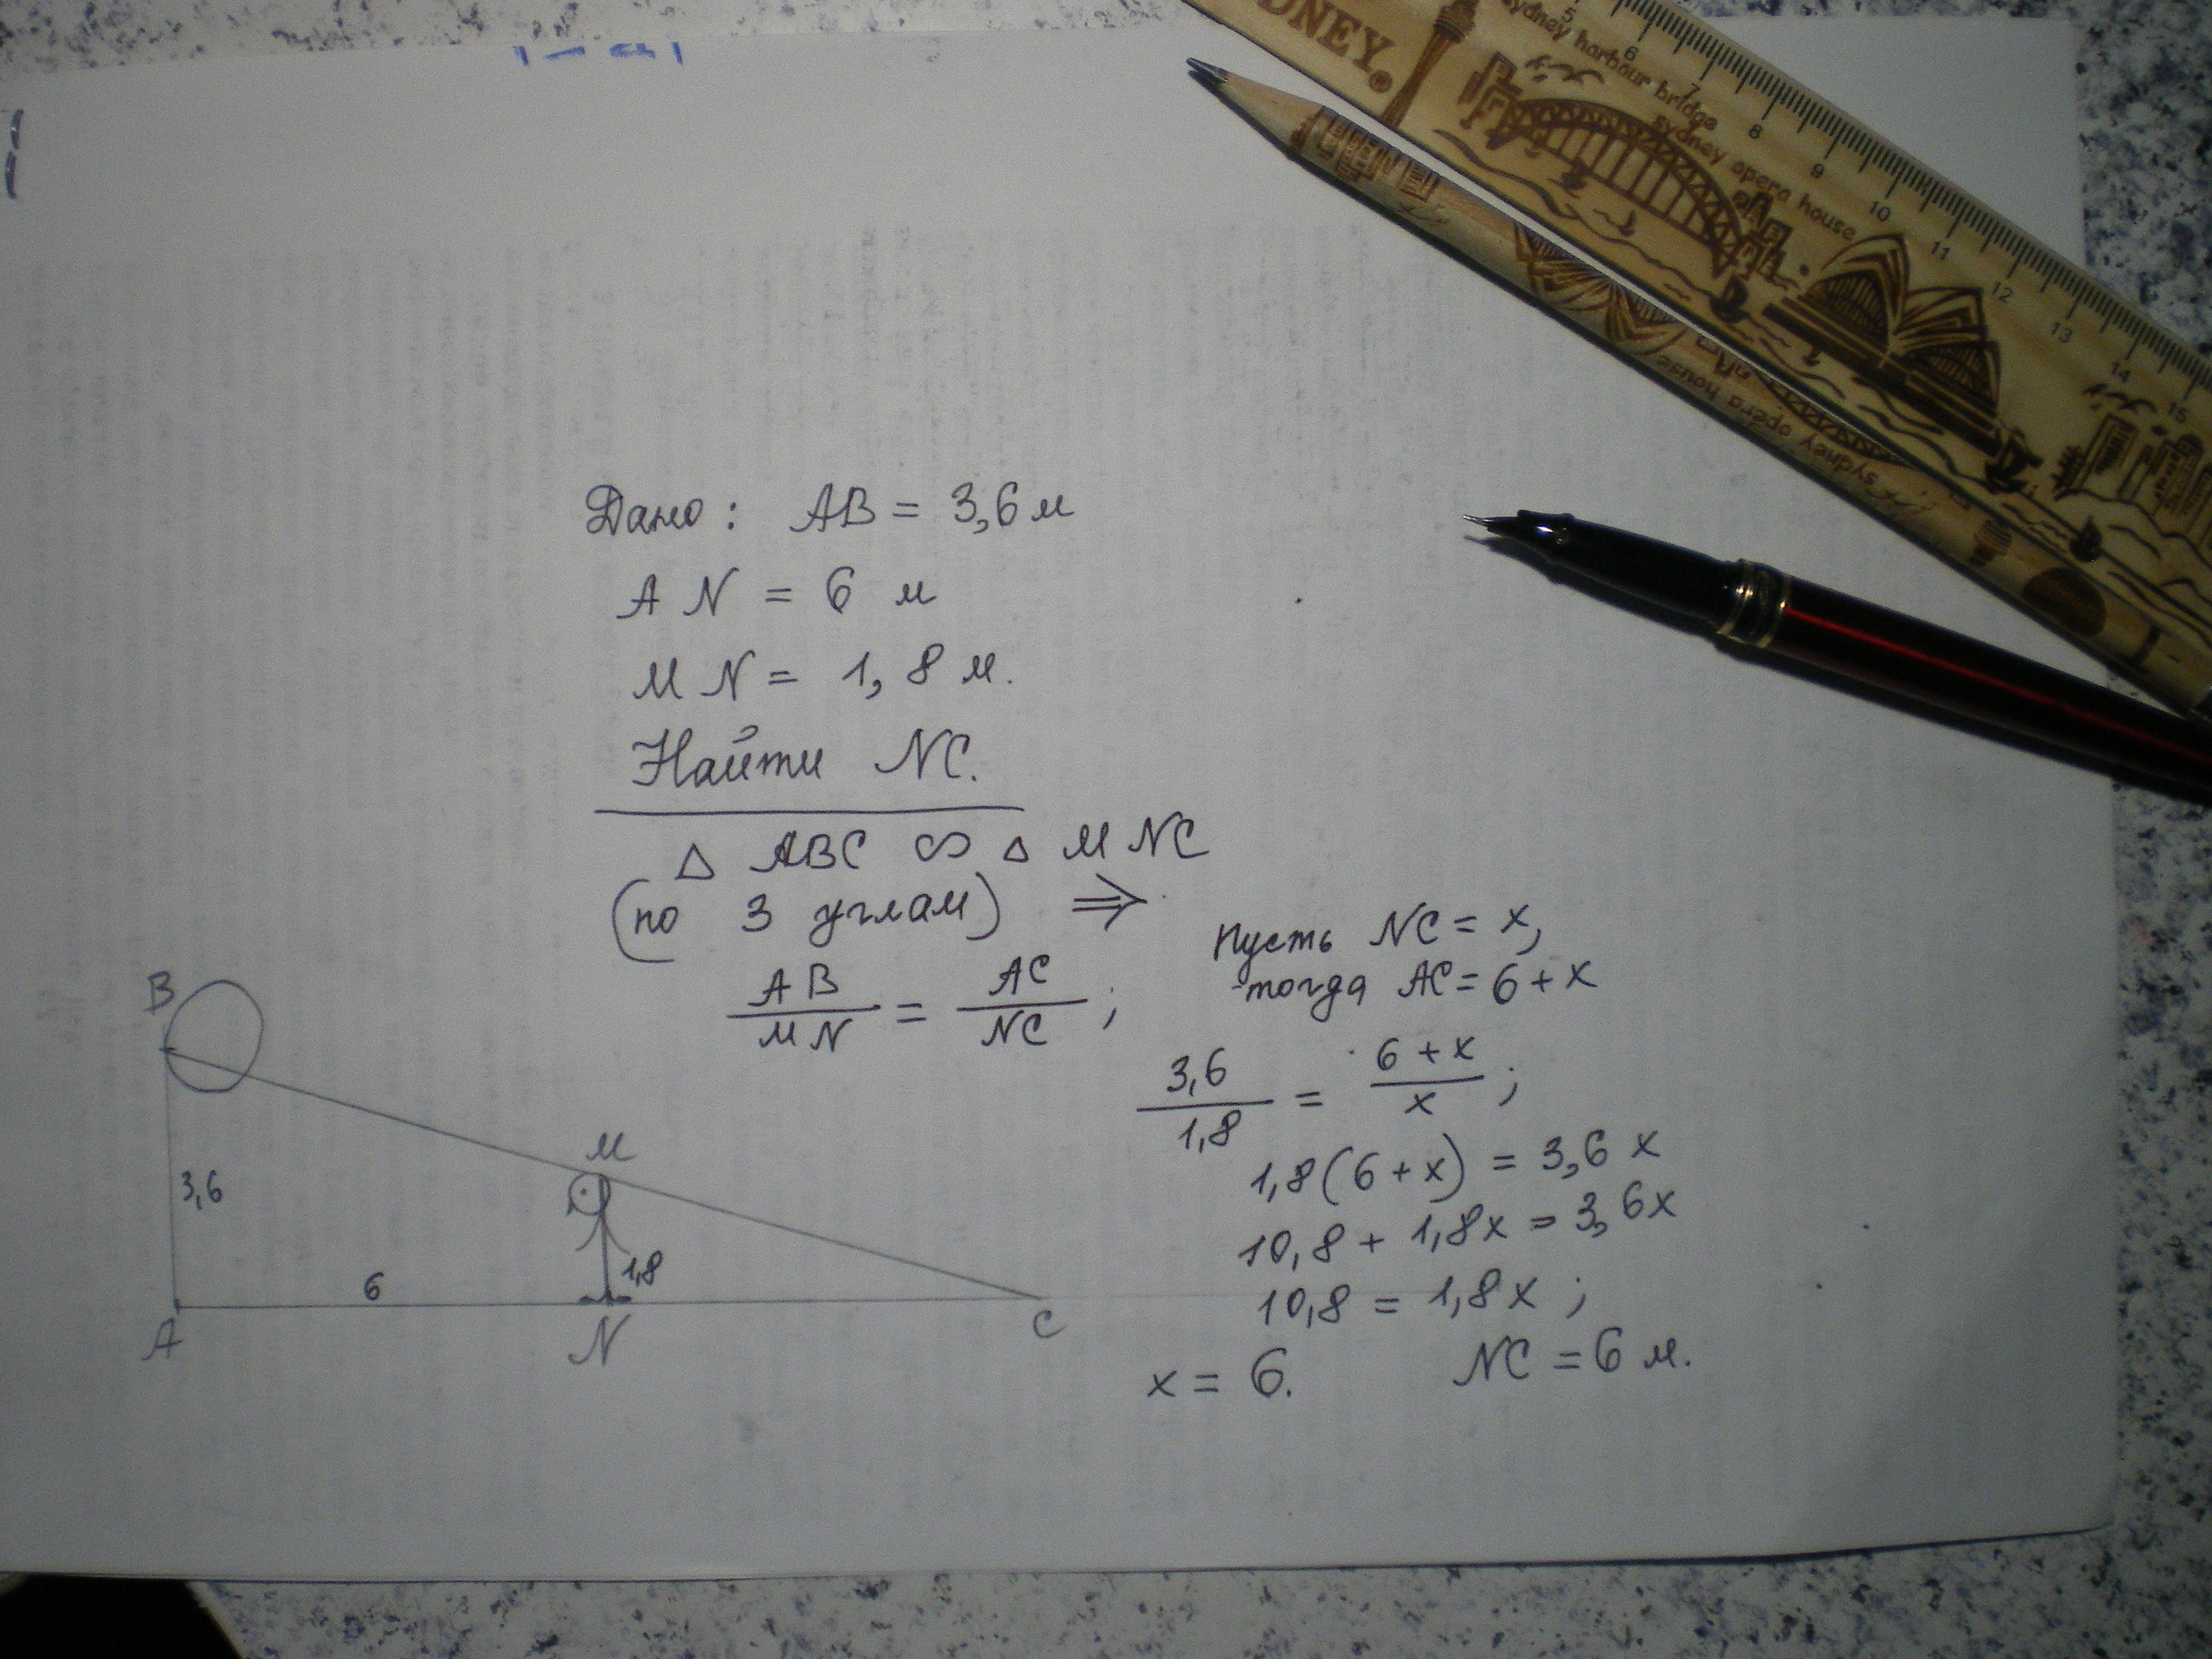 DNEY®
sydney harbour bridge
sydney opera house
5 6 7 8 9 10 11 12 13 14 15
sydney opera house
Дано: AB = 3,6 м
AN = 6 м
MN = 1,8 м.
Найти NC.
△ ABC ∾ △ MNC
(по 3 углам) ⇒
AB/MN = AC/NC ;
Пусть NC = x,
тогда AC = 6 + x
3,6/1,8 = 6 + x/x ;
1,8(6 + x) = 3,6 x
10,8 + 1,8x = 3,6x
10,8 = 1,8x ;
x = 6. NC = 6 м.
B
M
3,6
1,8
6
A
N
C